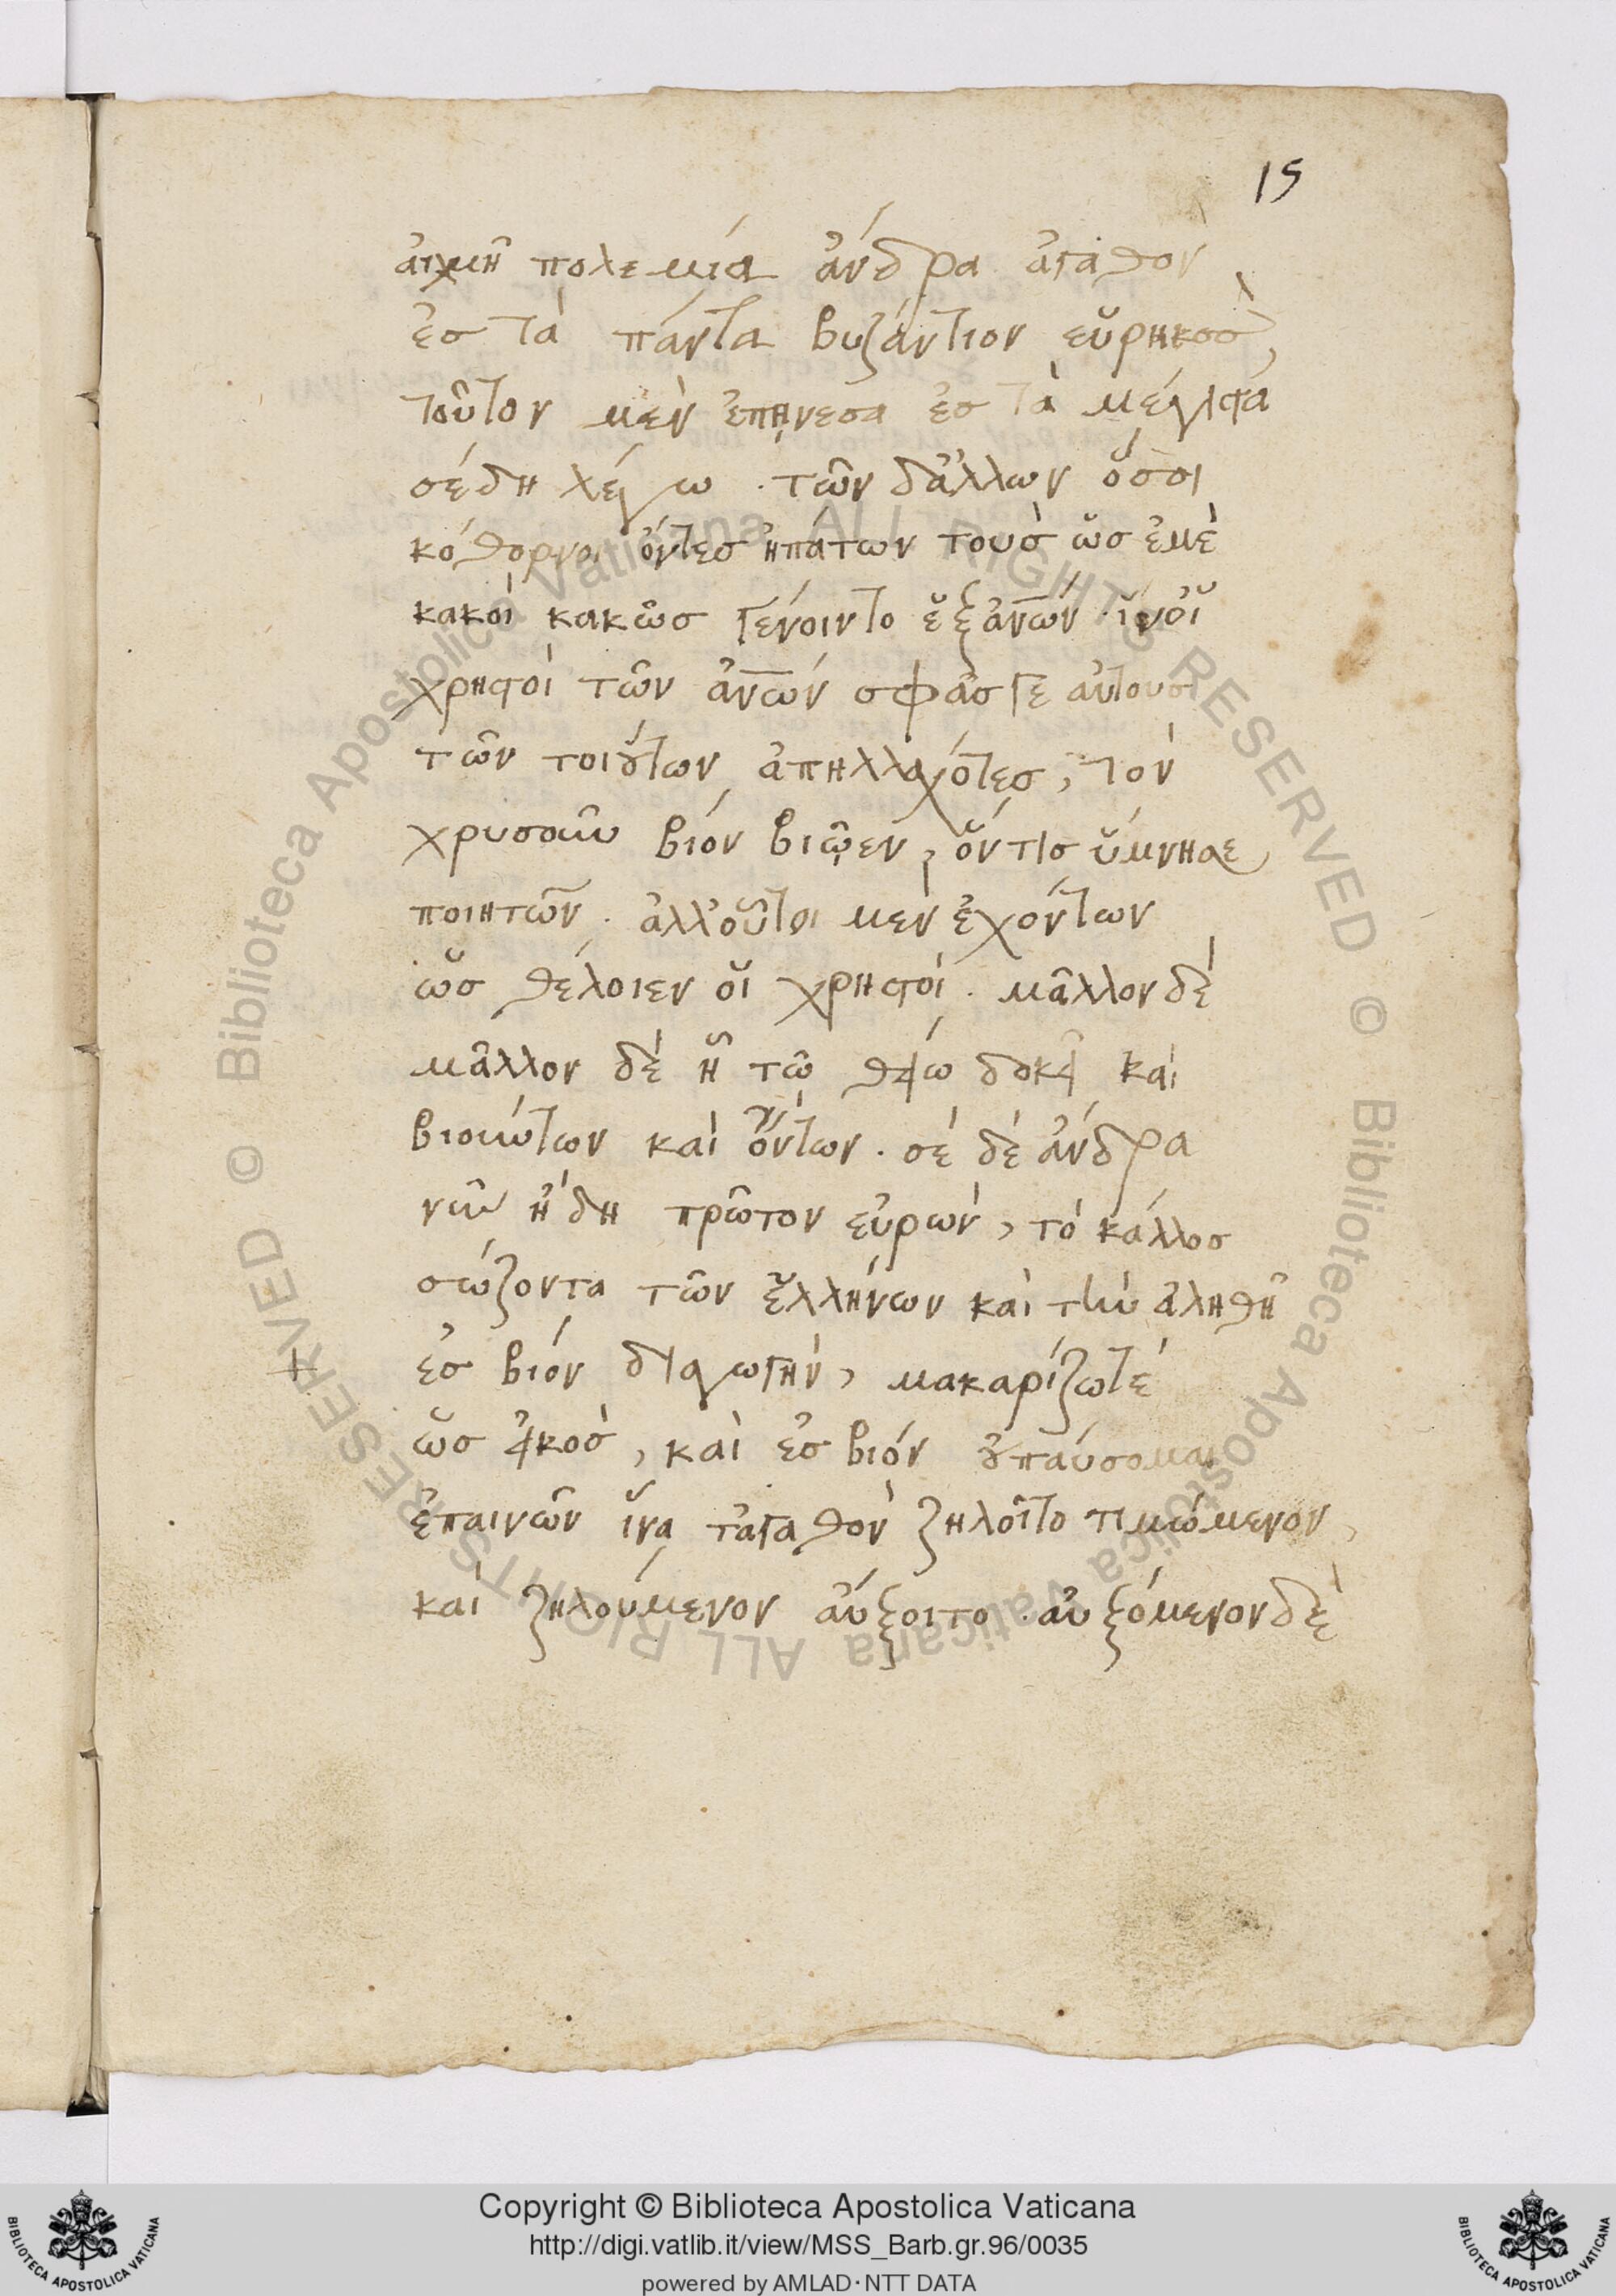 15
ἀιχμῆ πολεμία ἄνδρα ἀγαθὸν
ἐσ τὰ πάντα βυζάντιον εὕρηκὼσ,
τοῦτον μὲν ἐπήνεσα ἐσ τὰ μέγιστα
σέ δὴ λέγω. τῶν δἄλλων ὅσοι
κόθορνοι ὄντεσ ἠπάτων τοὺσ ὥσ ἐμὲ
κακοὶ κακῶσ γένοιντο ἐξ ἀν̅ων. ἵν οἱ
χρηστοὶ τῶν ἀν̅ων σφᾶσ γε αὐτοὺσ
τῶν τοιούτων ἀπηλλαχότεσ, τὸν
χρυσοῦν βίον βιῷεν, ὅντισ ὕμνησε
ποιητῶν. ἀλλ' οὗτοι μὲν ἐχόντων
ὥσ θέλοιεν οἱ χρηστοί. μᾶλλον δὲ
μᾶλλον δὲ ἧ τῶ θείω δοκεῖ καὶ
βιούντων καὶ ὄντων. σὲ δὲ ἄνδρα
νῦν ἤδη πρῶτον εὑρών, τὸ κάλλοσ
σώζοντα τῶν ἑλλήνων καὶ τὴν ἀληθῆ
ἐσ βίον διαγωγήν, μακαρίζω τέ
ὡσ εἰκὸσ, καὶ ἐσ βίον οὐ παύσομαι
ἐπαινῶν ἵνα τἀγαθὸν ζηλοῖτο τιμώμενον,
καὶ ζηλούμενον ἀύξοιτο. αὐξόμενον δὲ
Copyright © Biblioteca Apostolica Vaticana
http://digi.vatlib.it/view/MSS_Barb.gr.96/0035
powered by AMLAD·NTT DATA
© Biblioteca Apostolica Vaticana ALL RIGHTS RESERVED © Biblioteca Apostolica Vaticana ALL RIGHTS RESERVED
BIBLIOTECA APOSTOLICA VATICANA
BIBLIOTECA APOSTOLICA VATICANA